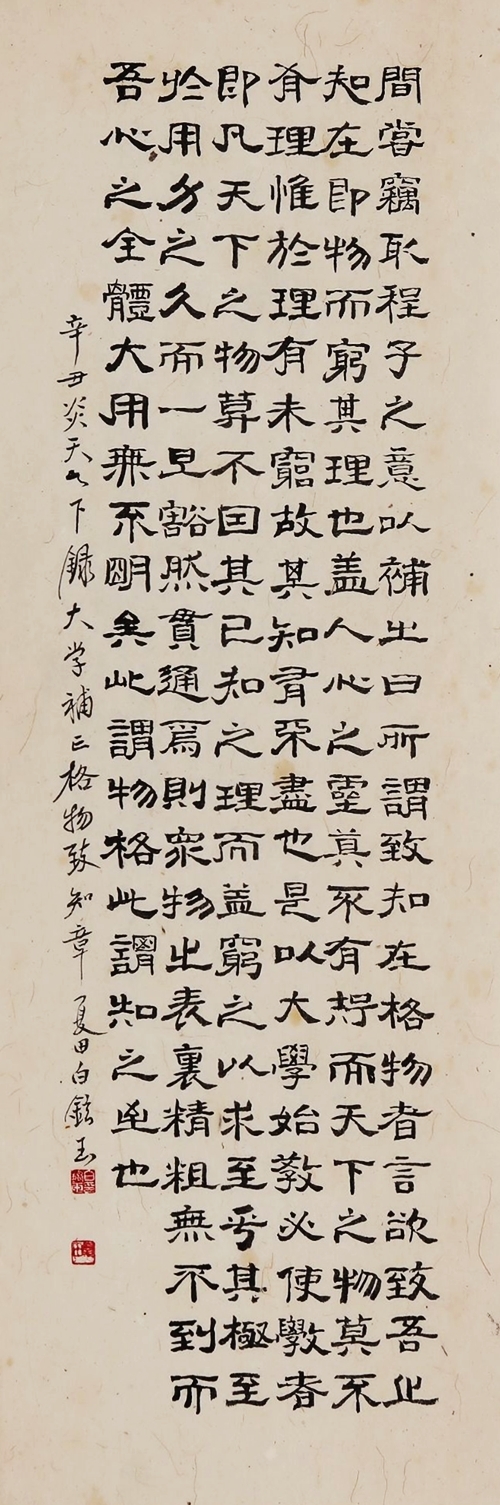 間嘗竊取程子之意以補之曰所謂致知在格物者言欲致吾之
知在即物而窮其理也盖人心之靈莫不有知而天下之物莫不
有理惟於理有未窮故其知有不盡也是以大學始教必使學者
即凡天下之物莫不因其已知之理而益窮之以求至乎其極至
於用力之久而一旦豁然貫通焉則衆物之表裏精粗無不到而
吾心之全體大用無不明矣此謂物格此謂知之至也
辛丑炎天之下録大学補亡格物致知章 夏田白鉉玉